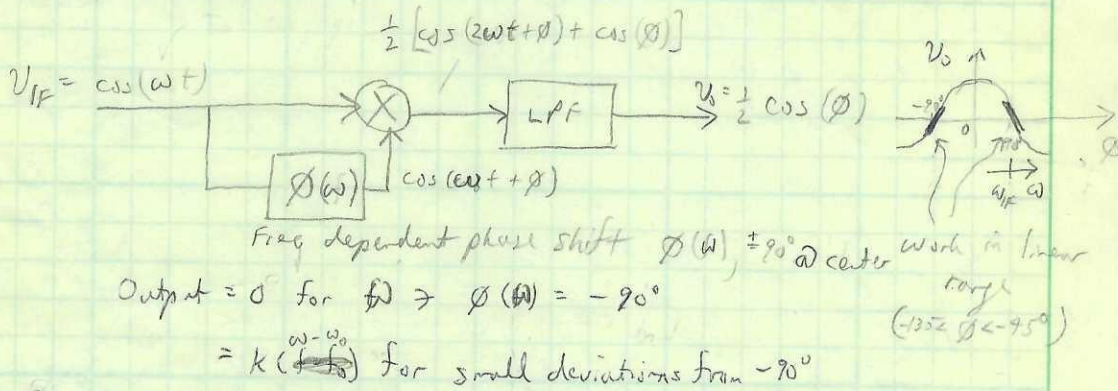 ½ [cos (2ωt+ø) + cos (ø)]
V_IF = cos(ωt)
X
LPF
V₀ = ½ cos (ø)
V₀
-90°
0
ø
ø(ω)
cos(ωt + ø)
ω_IF
ω
Freq dependent phase shift ø(ω), ±90° @ center
work in linear
range
(-135< ø <-95°)
Output = 0 for ω → ø(ω) = -90°
ω-ω₀
= k( ) for small deviations from -90°